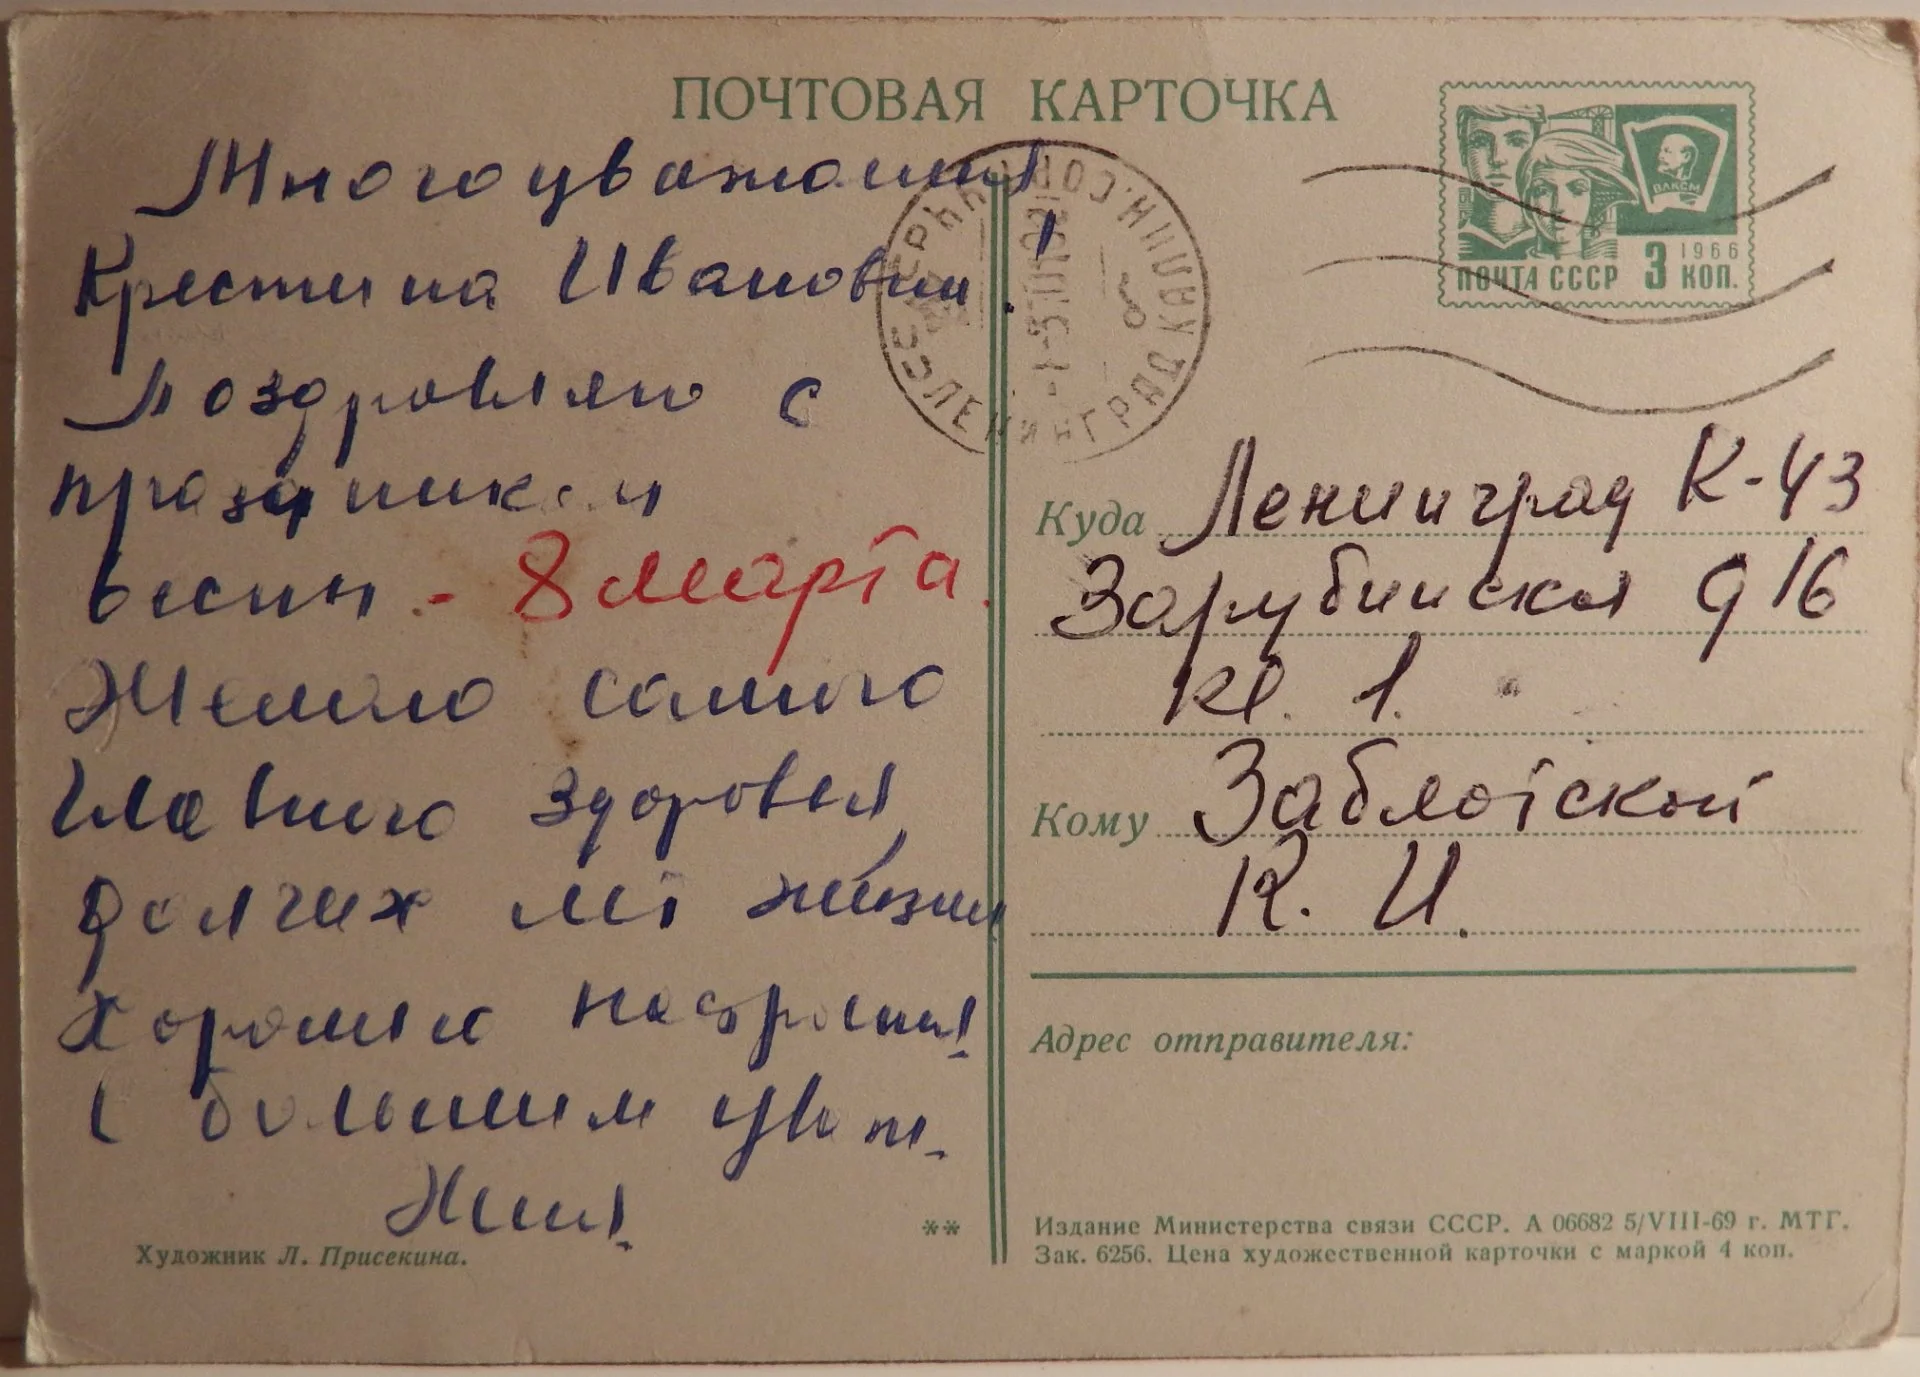 ПОЧТОВАЯ КАРТОЧКА
Многоуважаемая
Крестина Ивановна!
Поздравляю с
праздником
весны - 8 марта.
Желаю самого
главного здоровья,
долгих лет жизни
хорошего настроения
С большим уваж.
ВЛКСМ
1966
ПОЧТА СССР 3 КОП.
ЛЕНИНГРАД
Куда Ленинград К-43
Зарубинская д 16
кв. 1.
Кому Заблотской
К. И.
Адрес отправителя:
Художник Л. Присекина.
**
Издание Министерства связи СССР. А 06682 5/VIII-69 г. МТГ.
Зак. 6256. Цена художественной карточки с маркой 4 коп.